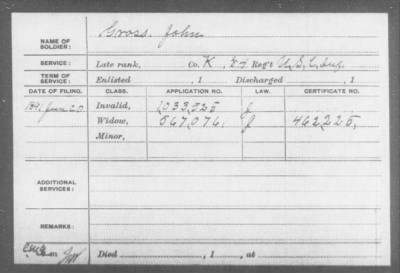 NAME OF SOLDIER: Gross, John
SERVICE: Late rank, Co. K, Reg't U.S.C. Inf.
TERM OF SERVICE: Enlisted , 1 Discharged , 1
DATE OF FILING. CLASS. APPLICATION NO. LAW. CERTIFICATE NO.
189 June 20 Invalid, J
Widow, 567,076, J 462,225,
Minor,
ADDITIONAL SERVICES:
REMARKS:
Died , 1 , at